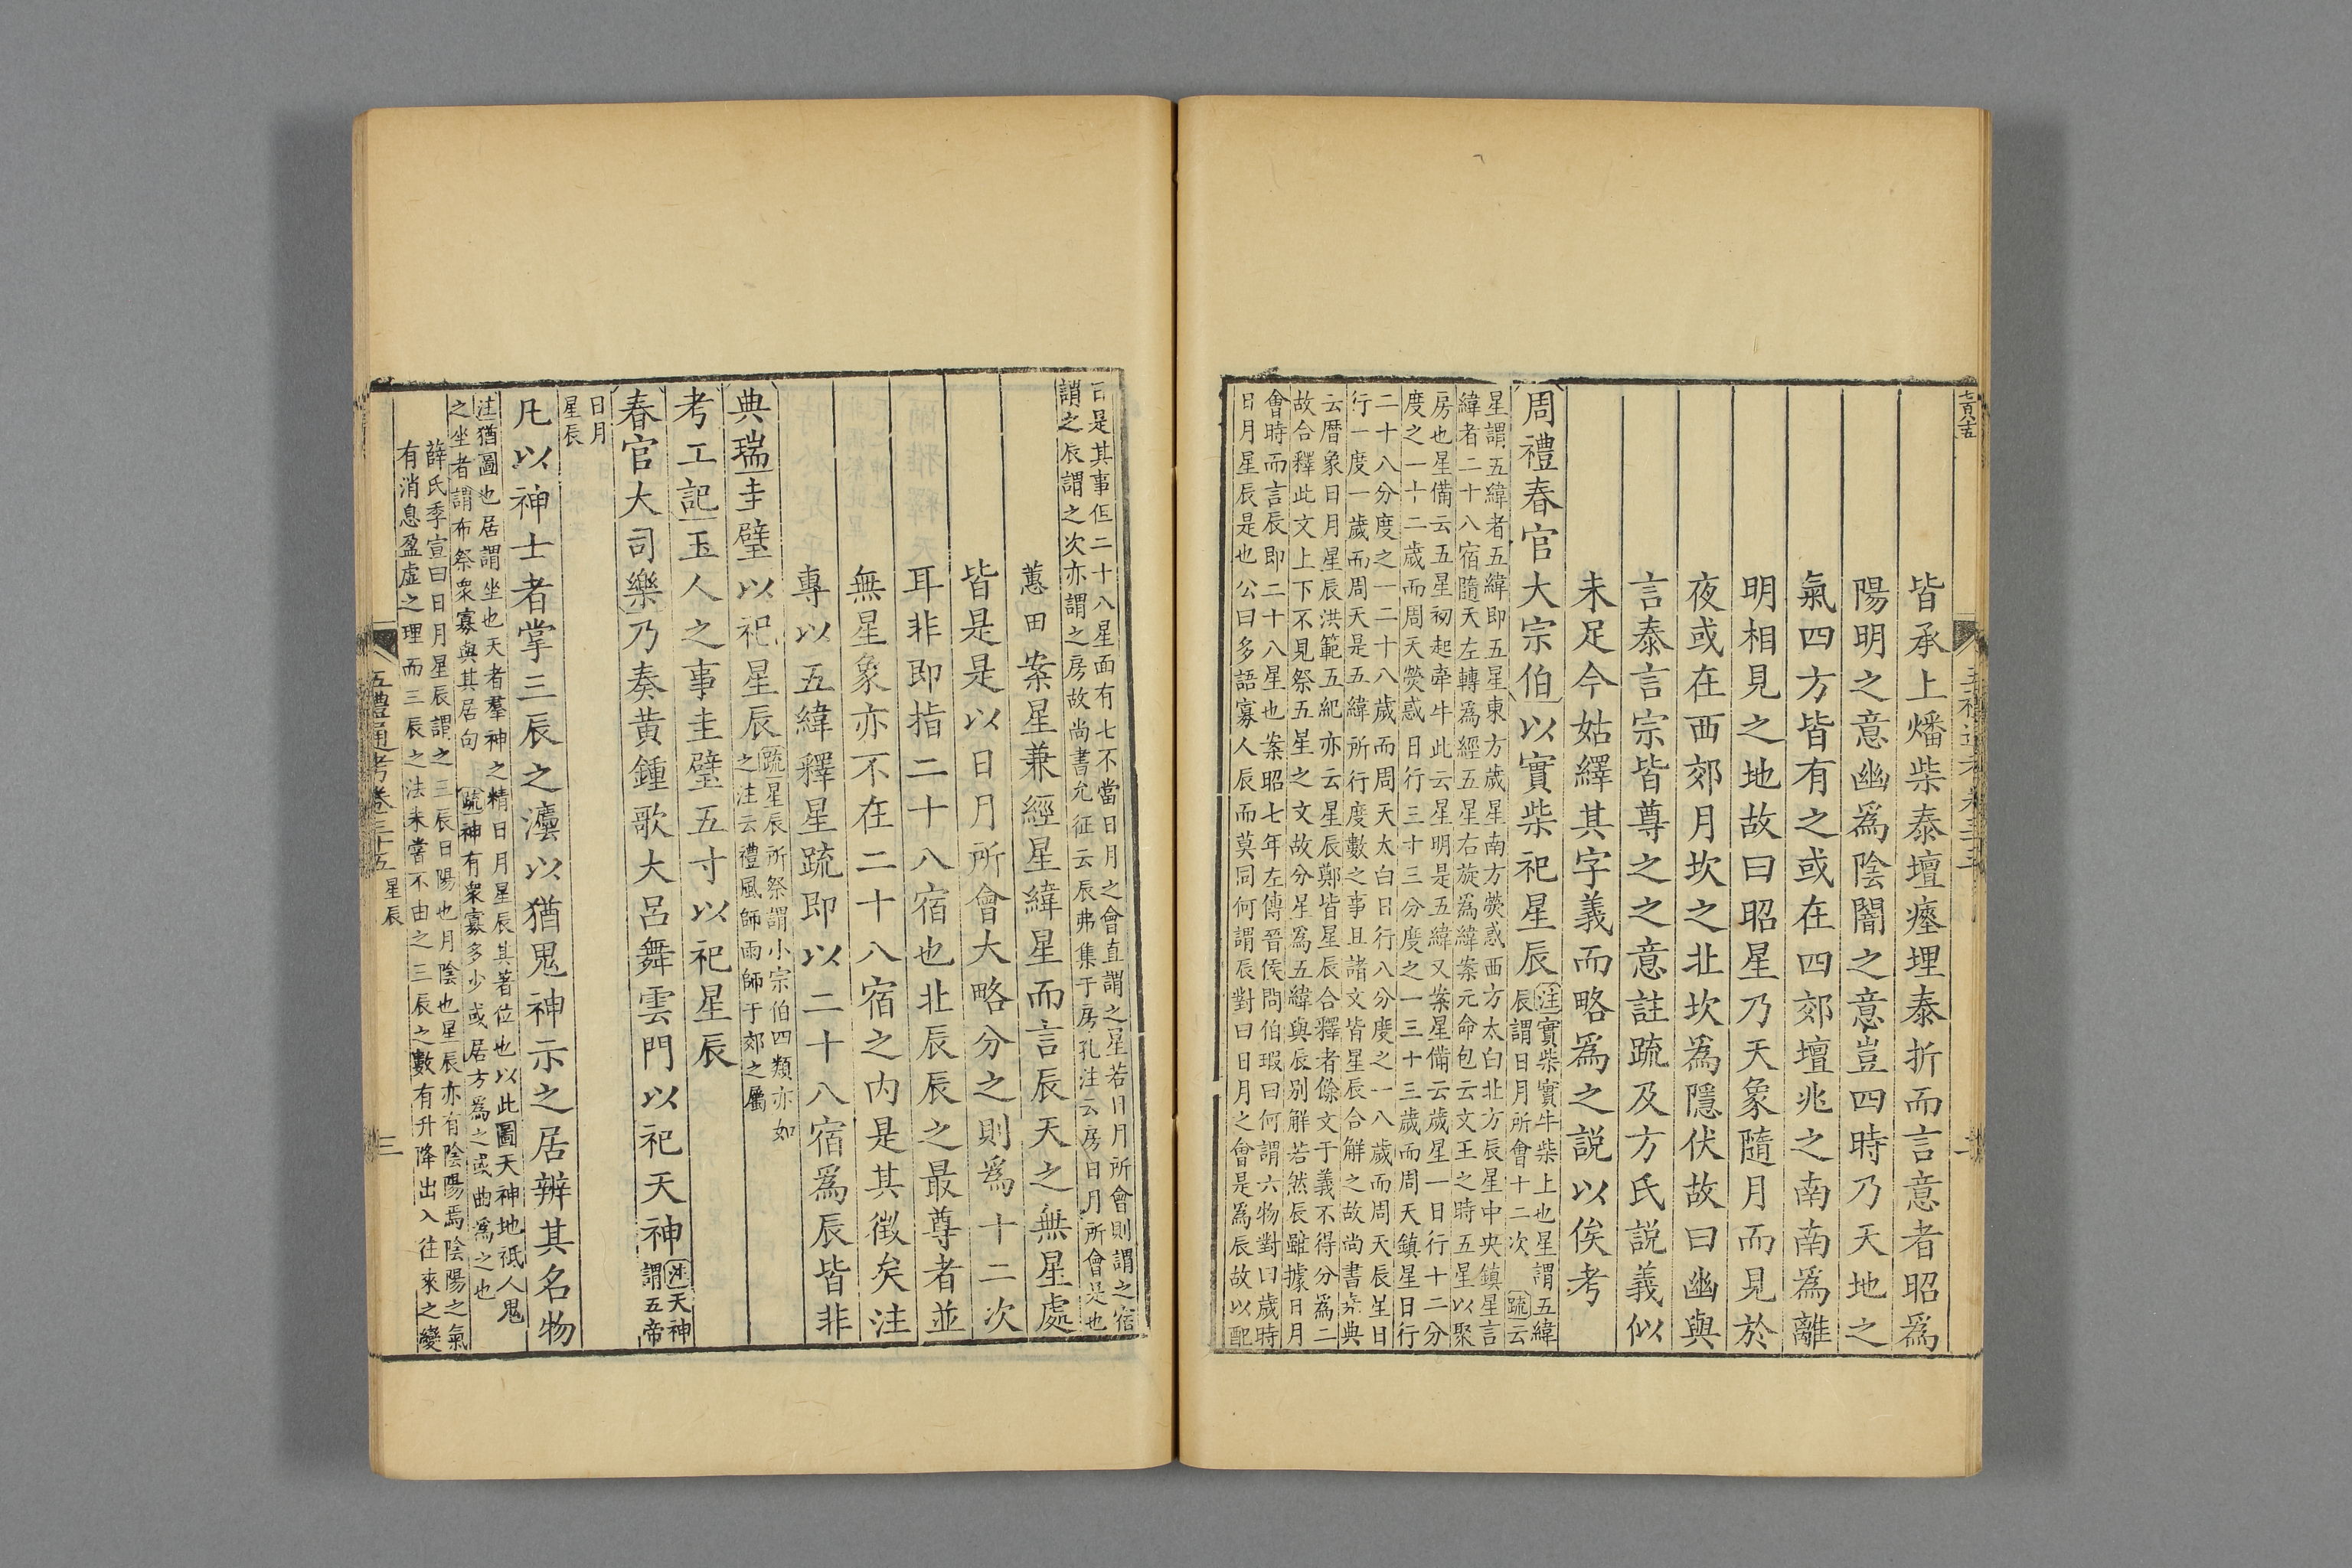 皆承上燔柴泰壇瘞埋泰折而言意者昭爲
陽明之意幽爲陰闇之意豈四時乃天地之
氣四方皆有之或在四郊壇兆之南南爲離
明相見之地故曰昭星乃天象隨月而見於
夜或在西郊月坎之北坎爲隱伏故曰幽與
言泰言宗皆尊之之意註疏及方氏説義似
未足今姑繹其字義而略爲之説以俟考
周禮春官大宗伯以實柴祀星辰
注實柴實牛柴上也星謂五緯
辰謂日月所會十二次 疏云
星謂五緯者五緯即五星東方歲星南方熒惑西方太白北方辰星中央鎮星言
緯者二十八宿隨天左轉爲經五星右旋爲緯案元命包云文王之時五星以聚
房也星備云五星初起牽牛此云星明是五緯又案星備云歲星一日行十二分
度之一十二歲而周天熒惑日行三十三分度之一三十三歲而周天鎮星日行
二十八分度之一二十八歲而周天太白日行八分度之一八歲而周天辰星日
行一度一歲而周天是五緯所行度數之事且諸文皆星辰合解之故尚書堯典
云曆象日月星辰洪範五紀亦云星辰鄭皆星辰合釋者餘文于義不得分爲二
故合釋此文上下不見祭五星之文故分星爲五緯與辰别解若然辰雖據日月
會時而言辰即二十八星也案昭七年左傳晉侯問伯瑕曰何謂六物對曰歲時
日月星辰是也公曰多語寡人辰而莫同何謂辰對曰日月之會是爲辰故以配
日是其事但二十八星面有七不當日月之會直謂之星若日月所會則謂之宿
謂之辰謂之次亦謂之房故尚書允征云辰弗集于房孔注云房日月所會是也
蕙田案星兼經星緯星而言辰天之無星處
皆是是以日月所會大略分之則爲十二次
耳非即指二十八宿也北辰辰之最尊者並
無星象亦不在二十八宿之内是其徴矣注
專以五緯釋星疏即以二十八宿爲辰皆非
典瑞圭璧以祀星辰
疏星辰所祭謂小宗伯四類亦如
之注云禮風師雨師于郊之屬
考工記玉人之事圭璧五寸以祀星辰
春官大司樂乃奏黄鍾歌大呂舞雲門以祀天神
注天神
謂五帝
日月
星辰
凡以神士者掌三辰之灋以猶鬼神示之居辨其名物
注猶圖也居謂坐也天者羣神之精日月星辰其著位也以此圖天神地祇人鬼
之坐者謂布祭衆寡與其居句 疏神有衆寡多少或居方爲之或曲爲之也
薛氏季宣曰日月星辰謂之三辰日陽也月陰也星辰亦有陰陽焉陰陽之氣
有消息盈虛之理而三辰之法未嘗不由之三辰之數有升降出入往來之變
五禮通考卷三十五 星辰
三